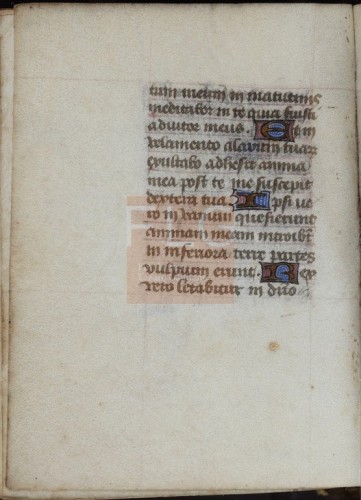 tum meum in matutinis
meditabor in te quia fuisti
adiutor meus. Et in
velamento alarum tuarum
exultabo adhesit anima
mea post te me suscepit
dextera tua. Ipsi ve
ro in vanum quesierunt
animam meam introibt
in inferiora terre partes
vulpium erunt. Rex
vero letabitur in dno